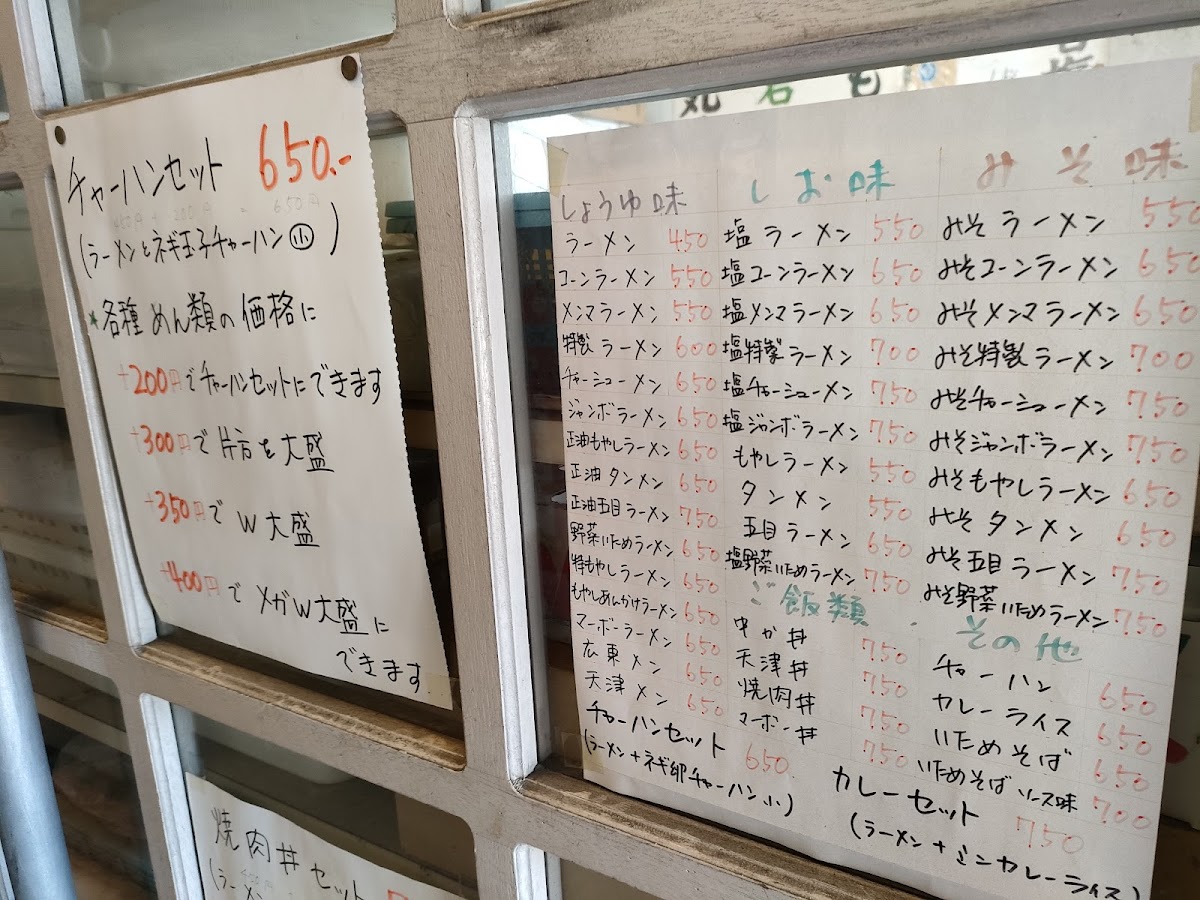 チャーハンセット 650.-
(ラーメンとネギ玉子チャーハン小)
*各種めん類の価格に
+200円でチャーハンセットにできます
+300円で片方を大盛
+350円でW大盛
+400円でメガW大盛に
できます
焼肉丼セット
(ラーメン
しょうゆ味
ラーメン 450
コーンラーメン 550
メンマラーメン 550
特製ラーメン 600
チャーシューメン 650
ジャンボラーメン 650
正油もやしラーメン 650
正油タンメン 650
正油五目ラーメン 750
野菜いためラーメン 650
特もやしラーメン 650
もやしあんかけラーメン 650
マーボーラーメン 650
広東メン 650
天津メン 650
チャーハンセット 650
(ラーメン+ネギ卵チャーハン小)
しお味
塩ラーメン 550
塩コーンラーメン 650
塩メンマラーメン 650
塩特製ラーメン 700
塩チャーシューメン 750
塩ジャンボラーメン 750
もやしラーメン 550
タンメン 550
五目ラーメン 650
塩野菜いためラーメン 750
ご飯類
中か丼 750
天津丼 750
焼肉丼 750
マーボー丼 750
みそ味
みそラーメン 550
みそコーンラーメン 650
みそメンマラーメン 650
みそ特製ラーメン 700
みそチャーシューメン 750
みそジャンボラーメン 750
みそもやしラーメン 650
みそタンメン 650
みそ五目ラーメン 750
みそ野菜いためラーメン 750
その他
チャーハン 650
カレーライス 650
いためそば 650
いためそばソース味 700
カレーセット 750
(ラーメン+ミニカレーライス)